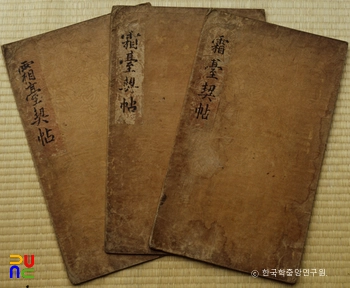 霜臺契帖
霜臺契帖
霜臺契帖
ⓒ 한국학중앙연구원